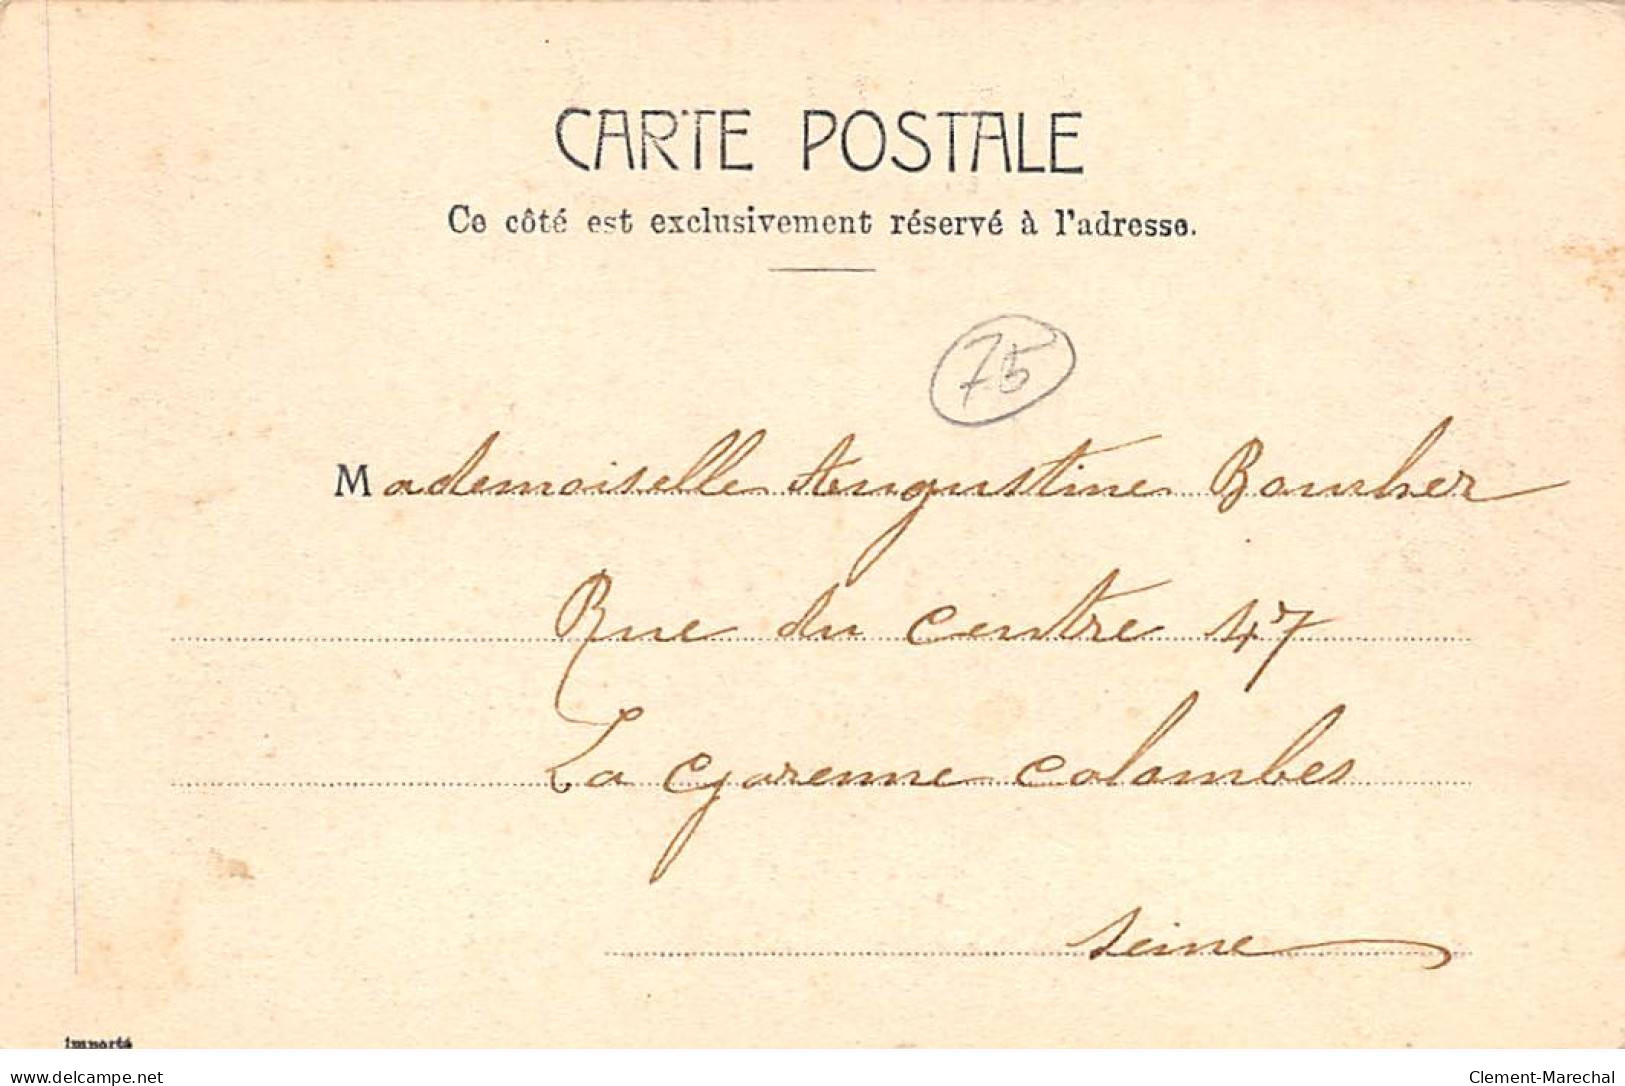 CARTE POSTALE
Ce côté est exclusivement réservé à l'adresse.
75
Mademoiselle Augustine
Rue du centre 47
La Garenne Colombes
Seine
importé
delcampe.net
Clement-Marechal